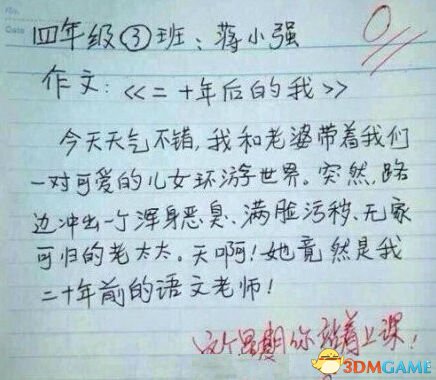 No.
Date
四年级③班：蒋小强
0
作文：《二十年后的我》
今天天气不错，我和老婆带着我们
一对可爱的儿女环游世界。突然，路
边冲出一个浑身恶臭、满脸污秽、无家
可归的老太太。天啊！她竟然是我
二十年前的语文老师！
这个星期你站着上课！
3DMGAME